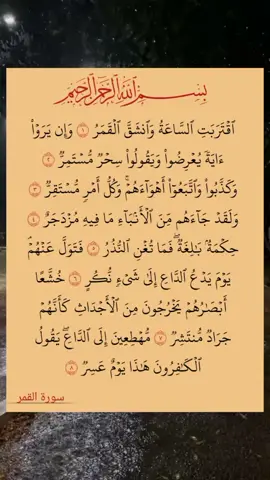 بِسْمِ ٱللَّهِ ٱلرَّحْمَٰنِ ٱلرَّحِيمِ
ٱقْتَرَبَتِ ٱلسَّاعَةُ وَٱنشَقَّ ٱلْقَمَرُ ١ وَإِن يَرَوْا۟
ءَايَةً يُعْرِضُوا۟ وَيَقُولُوا۟ سِحْرٌ مُّسْتَمِرٌّ ٢
وَكَذَّبُوا۟ وَٱتَّبَعُوٓا۟ أَهْوَآءَهُمْ ۚ وَكُلُّ أَمْرٍ مُّسْتَقِرٌّ ٣
وَلَقَدْ جَآءَهُم مِّنَ ٱلْأَنۢبَآءِ مَا فِيهِ مُزْدَجَرٌ ٤
حِكْمَةٌۢ بَٰلِغَةٌ ۖ فَمَا تُغْنِ ٱلنُّذُرُ ٥ فَتَوَلَّ عَنْهُمْ ۘ
يَوْمَ يَدْعُ ٱلدَّاعِ إِلَىٰ شَىْءٍ نُّكُرٍ ٦ خُشَّعًا
أَبْصَٰرُهُمْ يَخْرُجُونَ مِنَ ٱلْأَجْدَاثِ كَأَنَّهُمْ
جَرَادٌ مُّنتَشِرٌ ٧ مُّهْطِعِينَ إِلَى ٱلدَّاعِ ۖ يَقُولُ
ٱلْكَٰفِرُونَ هَٰذَا يَوْمٌ عَسِرٌ ٨
سورة القمر